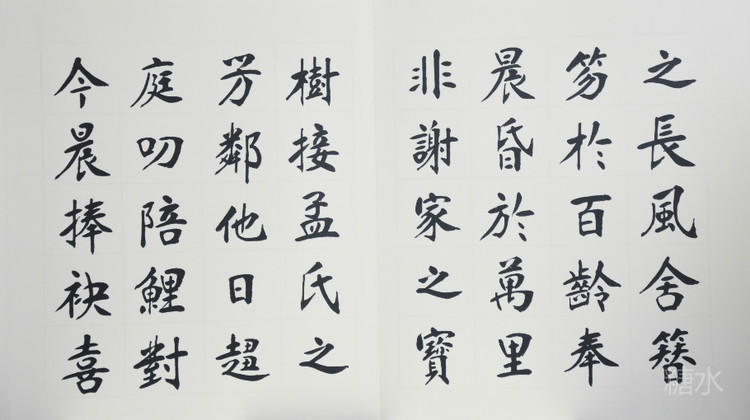 之長風舍簪
笏於百齡奉
晨昏於萬里
非謝家之寶
樹接孟氏之
芳鄰他日趨
庭叨陪鯉對
今晨捧袂喜
糖水